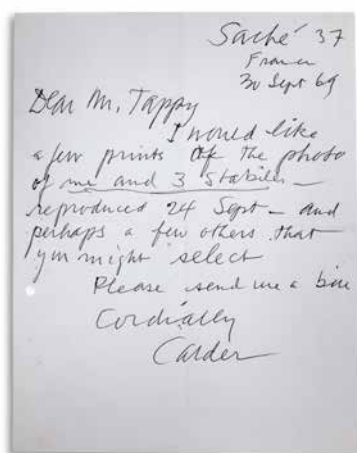 Saché 37
France
30 Sept 69
Dear Mr. Tappy
I would like
a few prints of the photo
of me and 3 stabiles —
reproduced 24 Sept — and
perhaps a few others that
you might select
Please send me a
Cordially
Calder